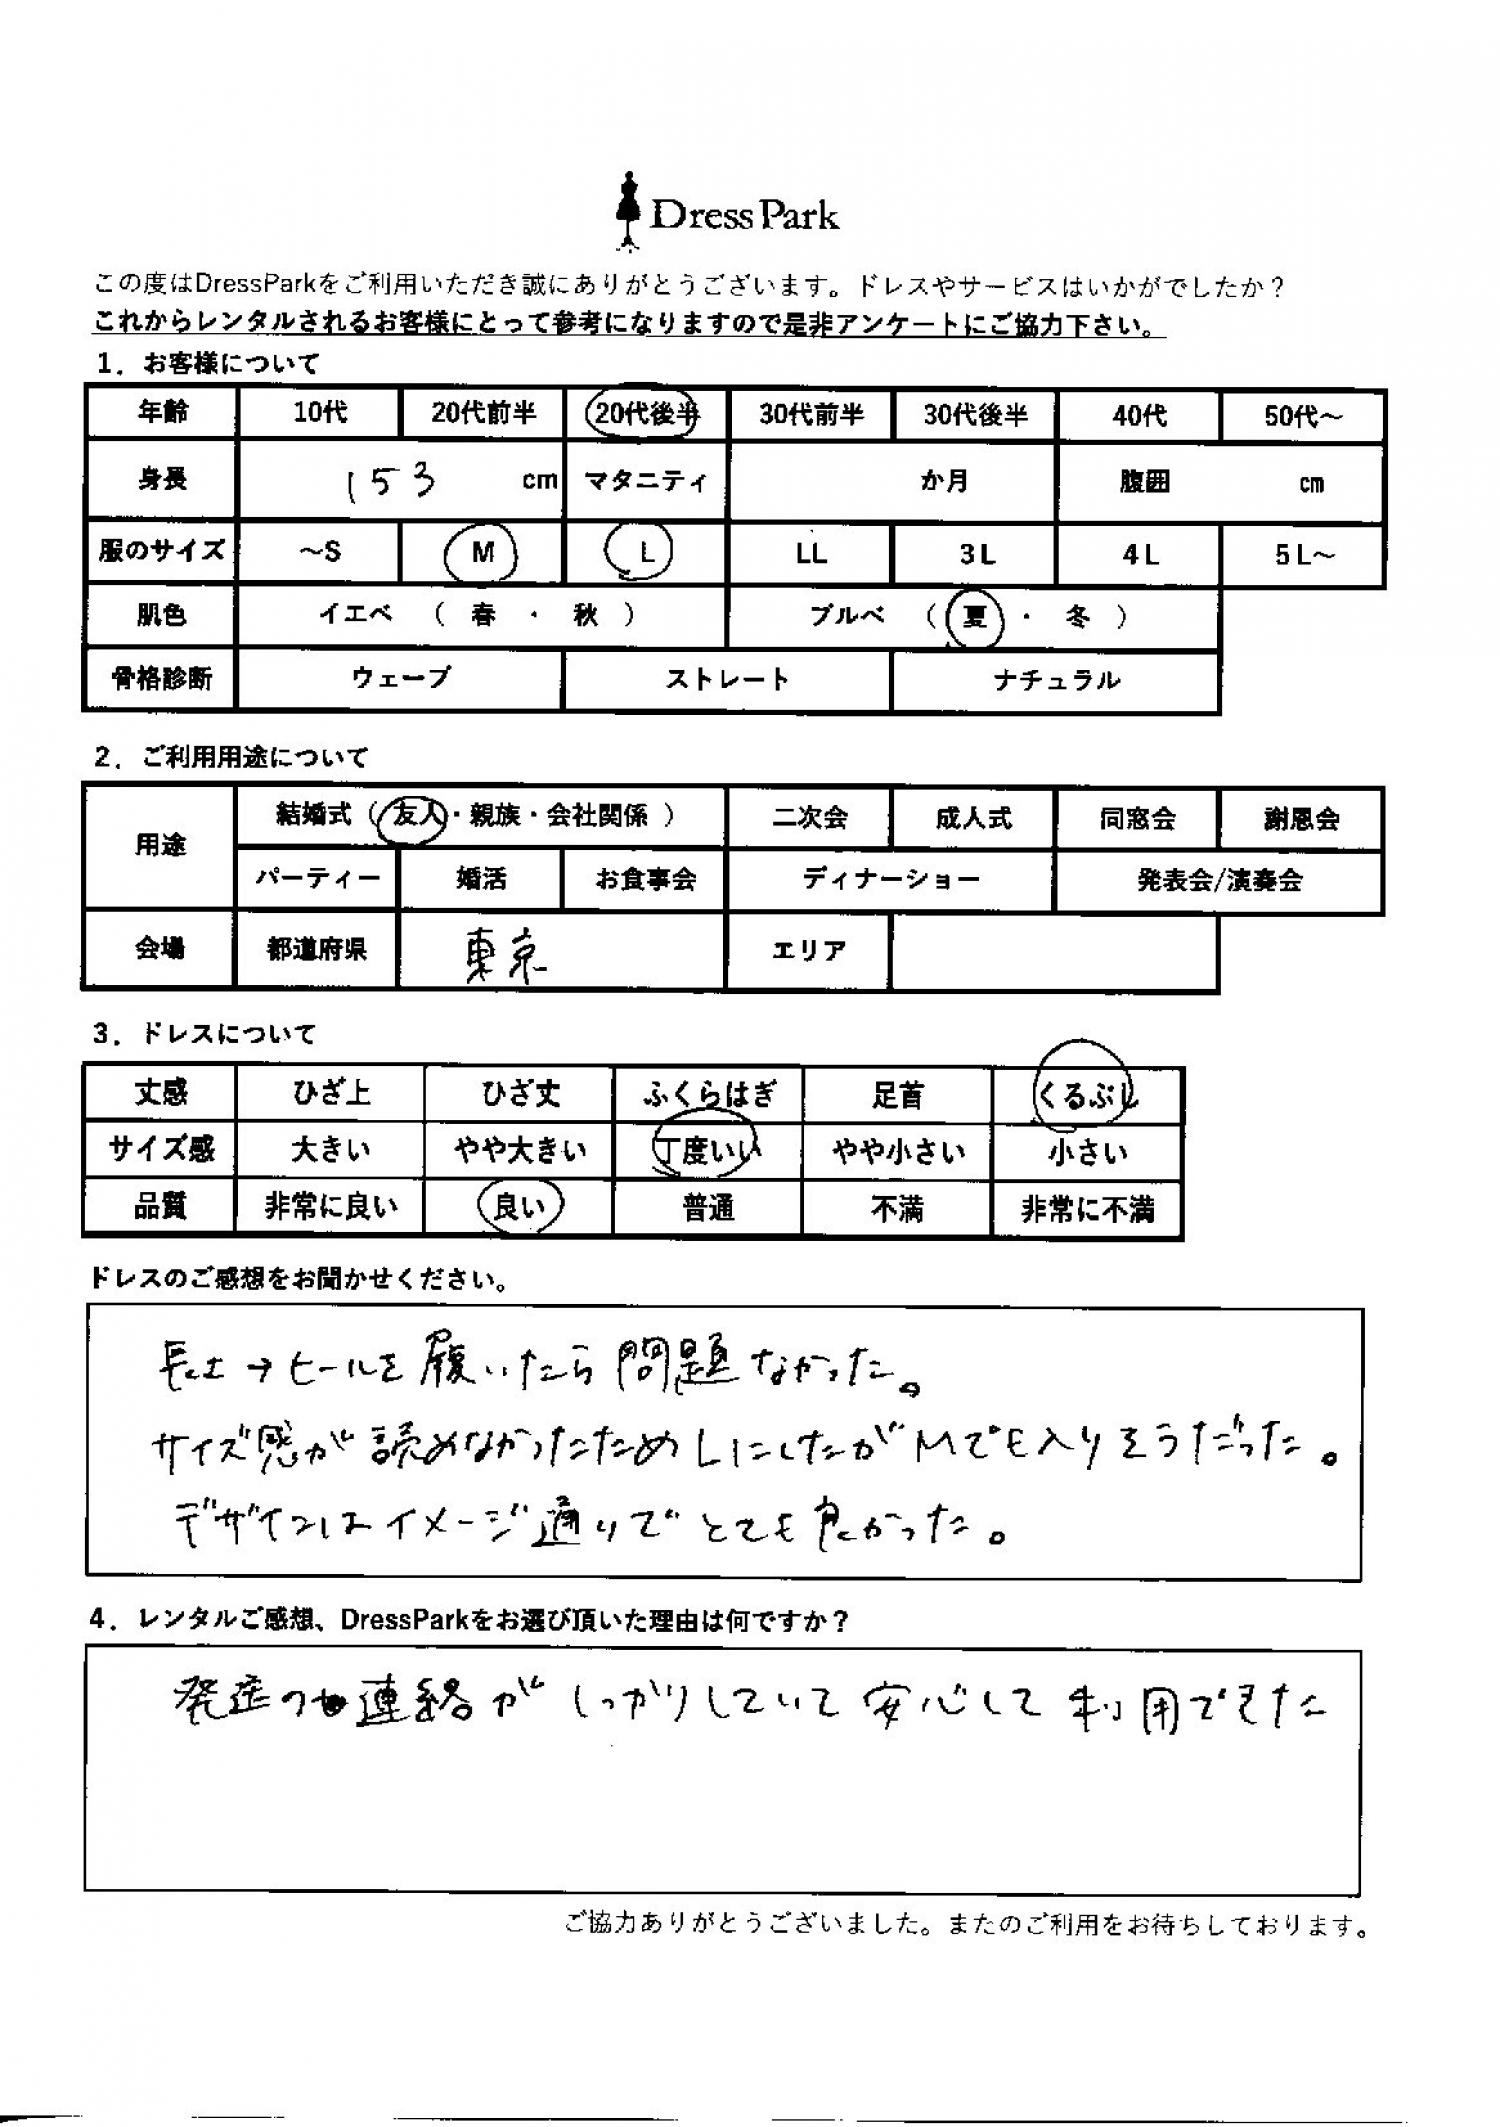 Dress Park
この度はDressParkをご利用いただき誠にありがとうございます。ドレスやサービスはいかがでしたか？
これからレンタルされるお客様にとって参考になりますので是非アンケートにご協力下さい。
1．お客様について
年齢 10代 20代前半 20代後半 30代前半 30代後半 40代 50代～
身長 153 cm マタニティ か月 腹囲 cm
服のサイズ ～S M L LL 3L 4L 5L～
肌色 イエベ （ 春 ・ 秋 ） ブルベ （ 夏 ・ 冬 ）
骨格診断 ウェーブ ストレート ナチュラル
2．ご利用用途について
用途 結婚式（ 友人・親族・会社関係 ） 二次会 成人式 同窓会 謝恩会
パーティー 婚活 お食事会 ディナーショー 発表会/演奏会
会場 都道府県 東京 エリア
3．ドレスについて
丈感 ひざ上 ひざ丈 ふくらはぎ 足首 くるぶし
サイズ感 大きい やや大きい 丁度いい やや小さい 小さい
品質 非常に良い 良い 普通 不満 非常に不満
ドレスのご感想をお聞かせください。
長さ→ヒールを履いたら問題なかった。
サイズ感が読めなかったためLにしたがMでも入りそうだった。
デザインはイメージ通りでとても良かった。
4．レンタルご感想、DressParkをお選び頂いた理由は何ですか？
発送の連絡がしっかりしていて安心して利用できた
ご協力ありがとうございました。またのご利用をお待ちしております。